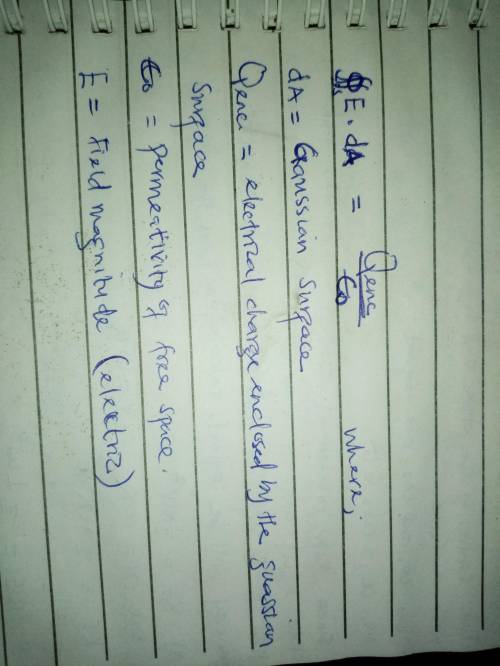 ∮E . dA = Qenc/ε₀ where,
dA = Gaussian surface
Qenc = electrical charge enclosed by the guassian
surface
ε₀ = permeativity of free space.
E = Field magnitude (electric)